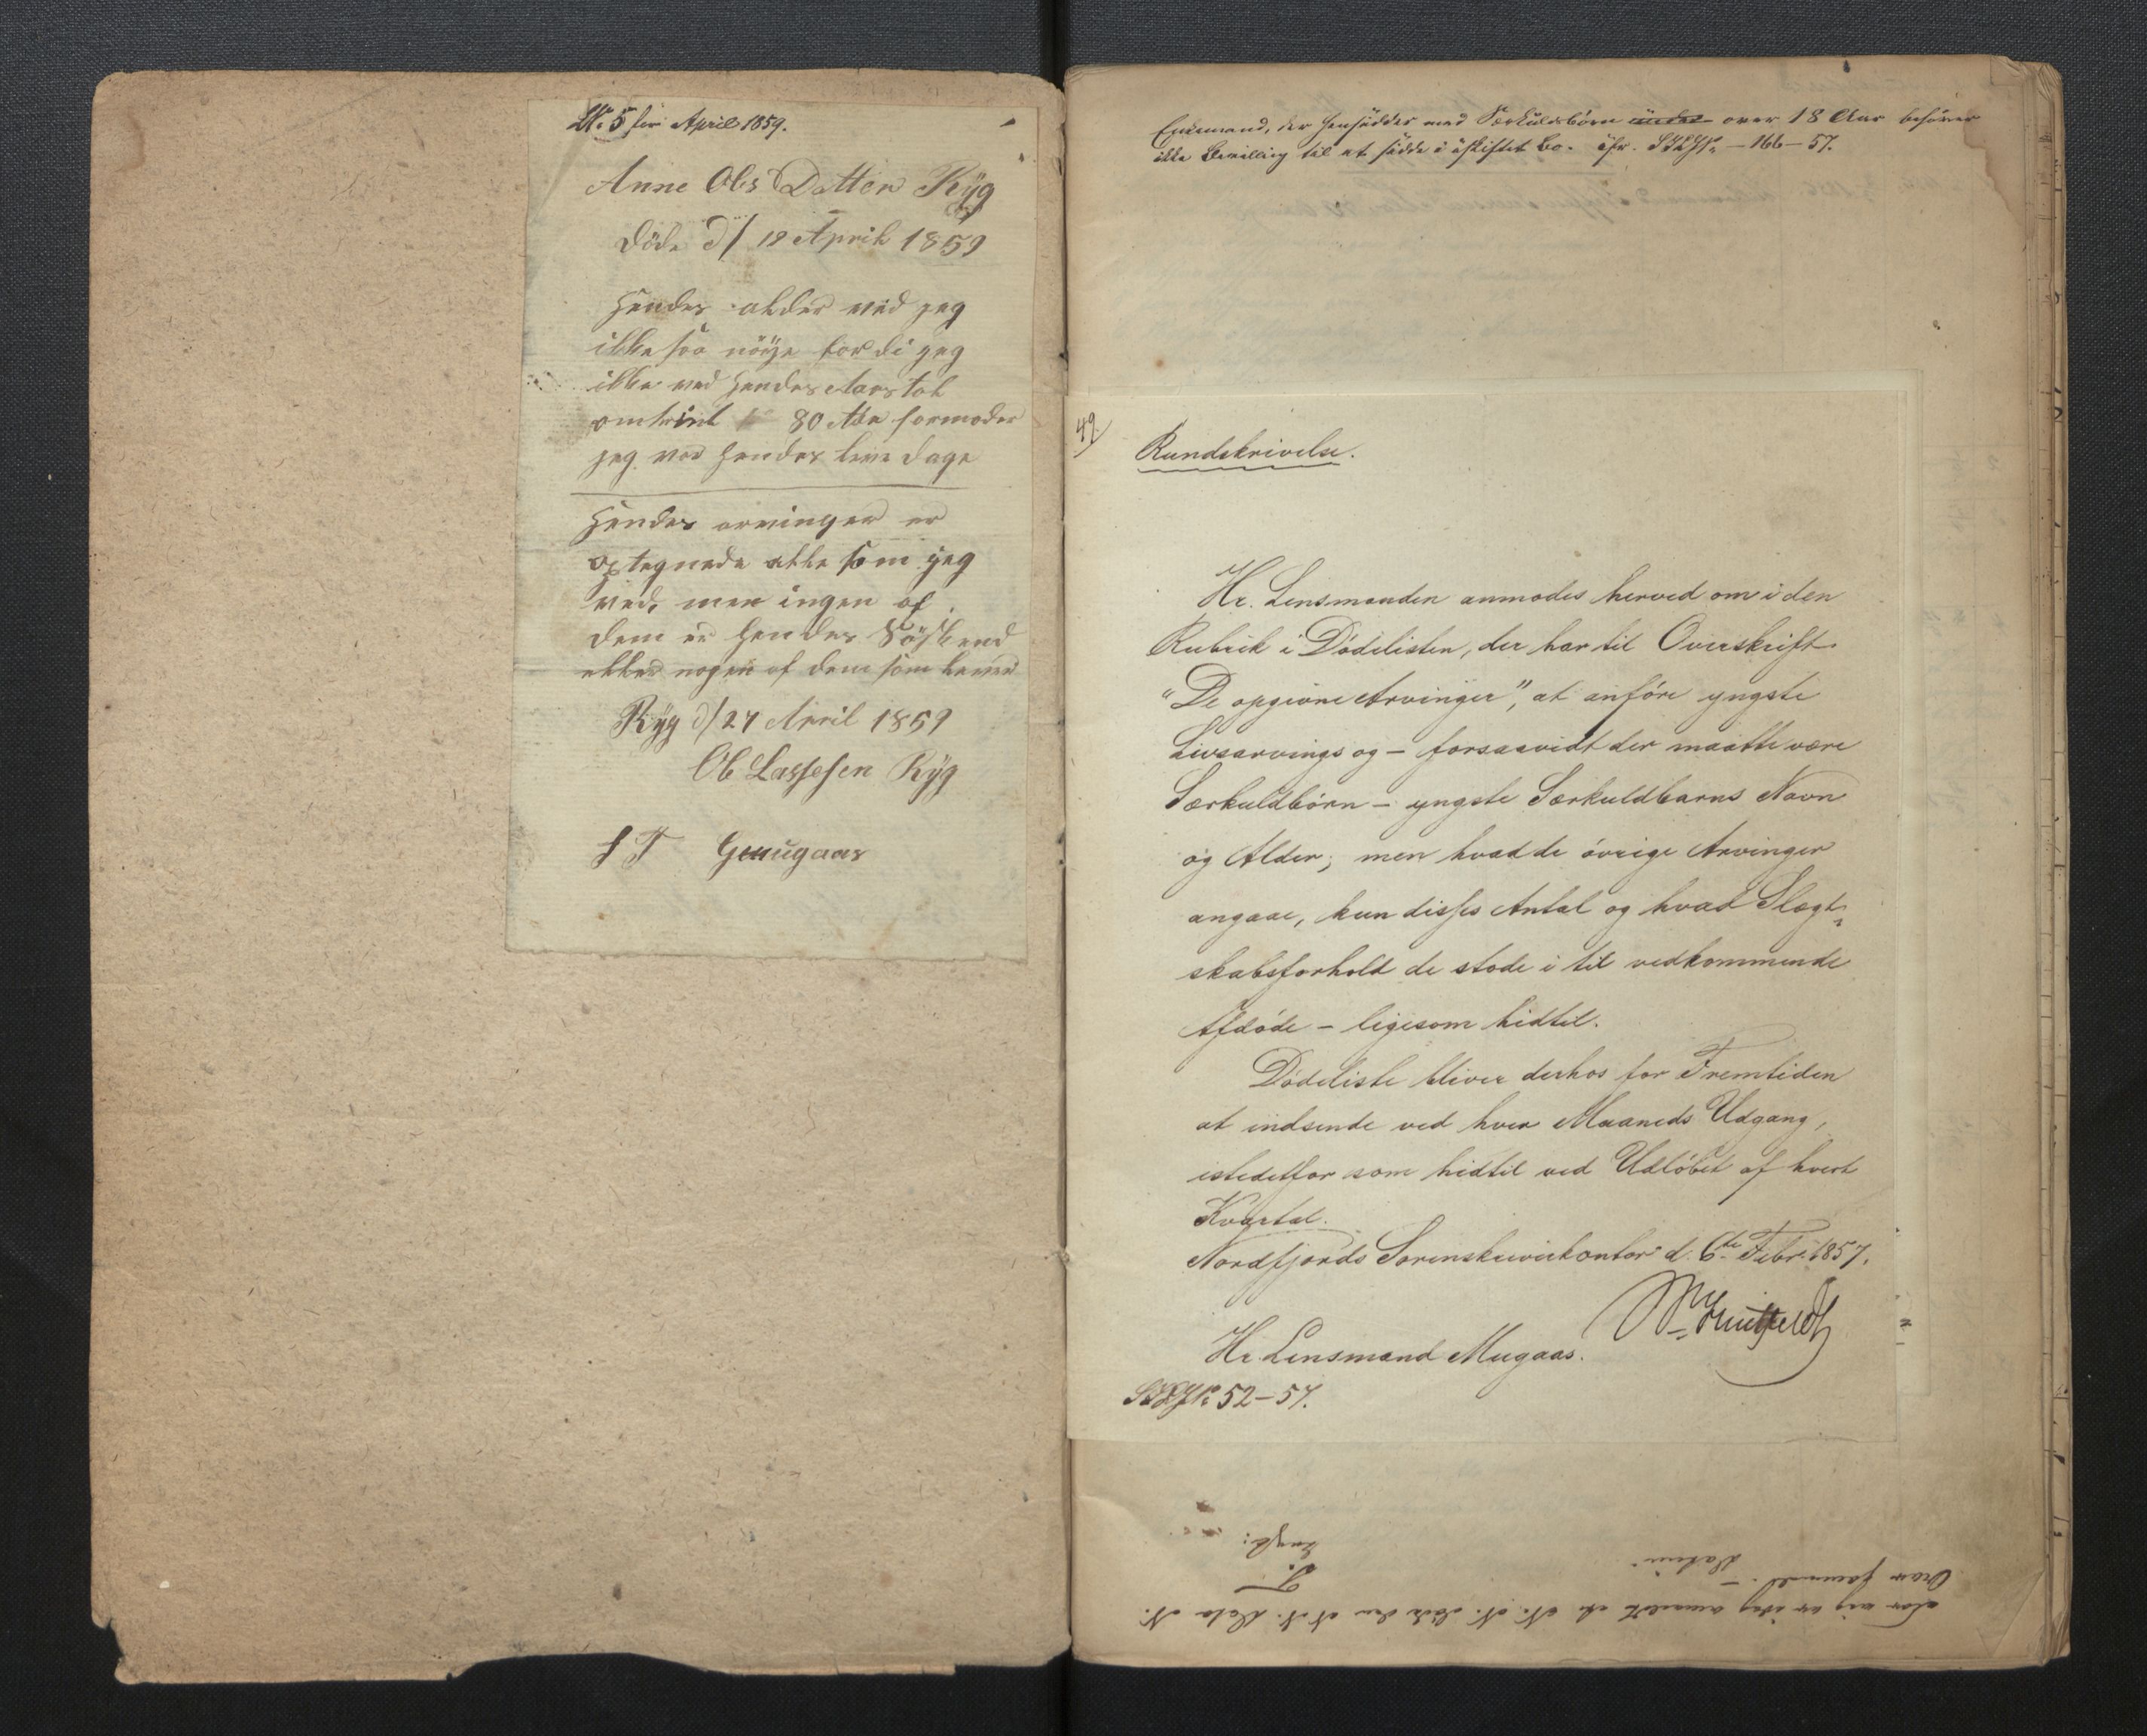 No. 5 for April 1859.
Anne Ols Datter Ryg
Döde d/ 12 April 1859
Hendes alder ved jeg
ikke saa nöye for di jeg
ikke ved hendes Aars tal
omtrint 80 Atte formoder
jeg var hendes leve dage
Hendes arvinger er
optegnede alle som jeg
ved, men ingen af
dem er hendes Söskend
eller nogen af dem som lever
Ryg d/ 27 April 1859
Ole Lassesen Ryg
S T Gmugaas
Enkemand, der hensidder med Særkuldsbörn under over 18 Aar behöver
ikke Bevilling til at sidde i uskiftet Bo. cfr. No. 166-57.
49
Rundskrivelse.
Hr. Lensmanden anmodes herved om i den
Rubrik i Dödelisten, der har til Overskrift
"De opgivne Arvinger", at anföre yngste
Livsarvings og - forsaavidt der maatte være
Særkuldbörn - yngste Særkuldbarns Navn
og Alder; men hvad de övrige Arvinger
angaae, kun disses Antal og hvad Slægt-
skabsforhold de stode i til vedkommende
Afdöde - ligesom hidtil.
Dödeliste bliver derhos for Fremtiden
at indsende ved hver Maaneds Udgang,
istedetfor som hidtil ved Udlöbet af hvert
Kvartal.
Nordfjords Sorenskriverkontor d. 6te Febr. 1857.
Hr. Lensmand Mugaas.
No. 52-57.
For mig er idag anmeldt at N. N. döde den N. N. Dato N.